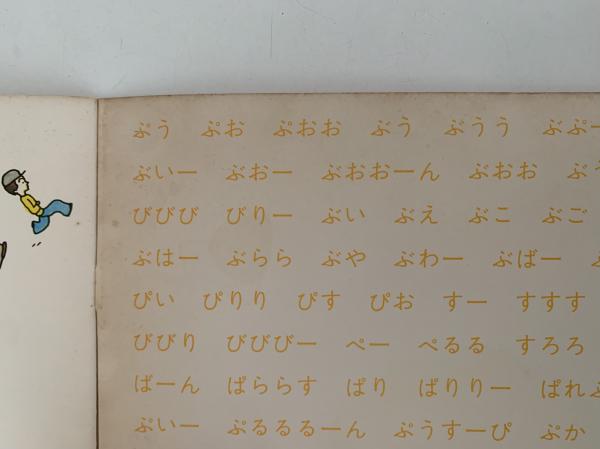 ぷう ぷお ぷおお ぶう ぶうう ぶぶー
ぶいー ぶおー ぶおおーん ぶおお
びびび びりー ぶい ぶえ ぶこ ぶご
ぶはー ぶらら ぶや ぶわー ぶばー
ぴい ぴりり ぴす ぴお すー すすす
びびり びびびー ぺー ぺるる すろろ
ばーん ぱららす ぱり ぱりりー ぱれ
ぷいー ぷるるるーん ぷうすーぴ ぷか